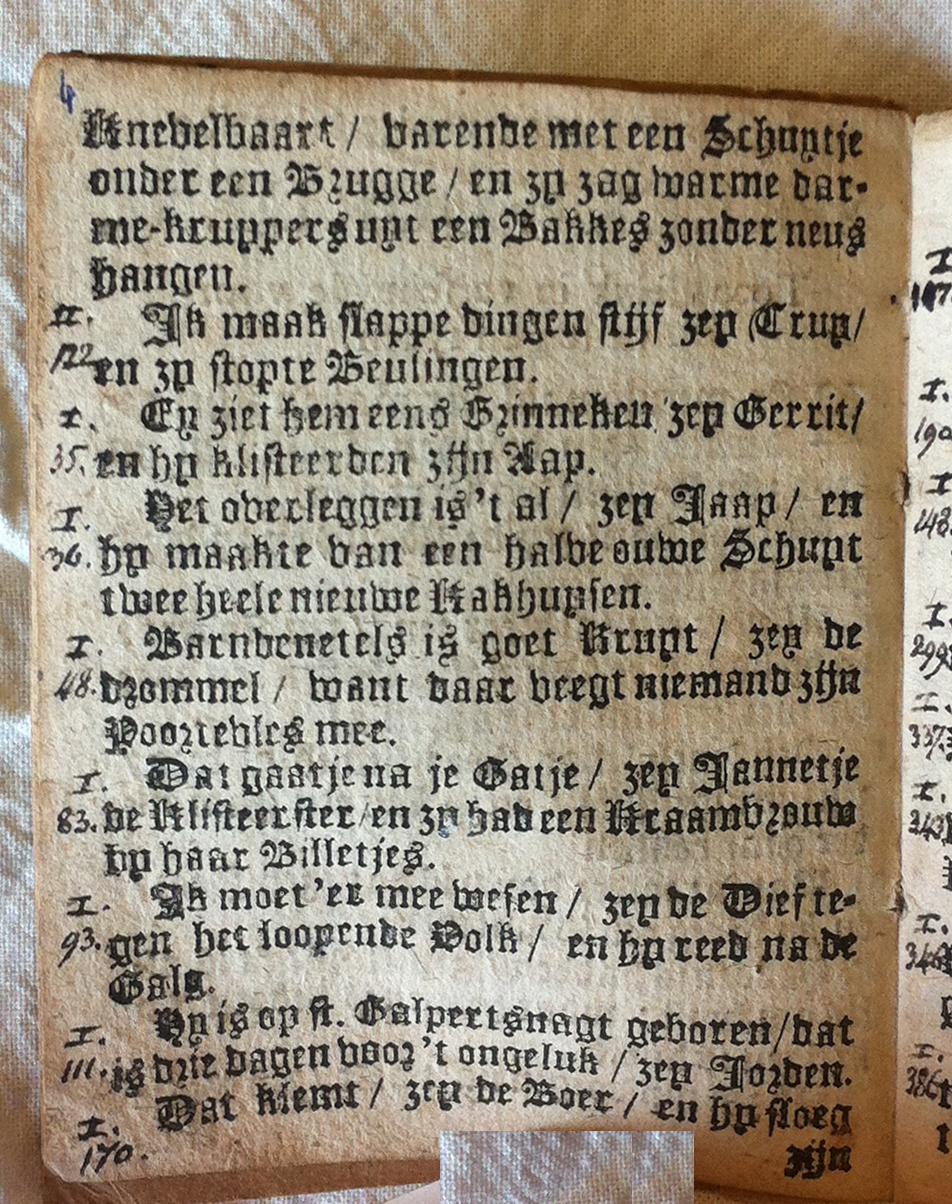 4
Knevelbaart / varende met een Schuytje
onder een Brugge / en zy zag warme dar-
me-kruypers uyt een Bakkes zonder neus
hangen.
II. Ik maak slappe dingen stijf zey Truy /
122. en zy stopte Beulingen.
I. Ey ziet hem eens Grinneken zey Gerrit /
35. en hy klisteerden zijn Aap.
I. Het overleggen is 't al / zey Jaap / en
36. hy maakte van een halve ouwe Schuyt
twee heele nieuwe Kakhuysen.
I. Barndenetels is goet Kruyt / zey de
48. drommel / want daar veegt niemand zijn
Poortevles mee.
I. Dat gaatje na je Gatje / zey Jannetje
83. de Klisteerster / en zy had een Kraamvrouw
by haar Billetjes.
I. Ik moet 'er mee wesen / zey de Dief te-
93. gen het loopende Volk / en hy reed na de
Galg.
I. Hy is op st. Galpertsnagt geboren / dat
111. is drie dagen voor 't ongeluk / zey Jorden.
I. Dat klemt / zey de Boer / en hy sloeg
170. zijn
I.
I.
190
I.
148
I.
299
I.
337
I.
I.
346
I.
386